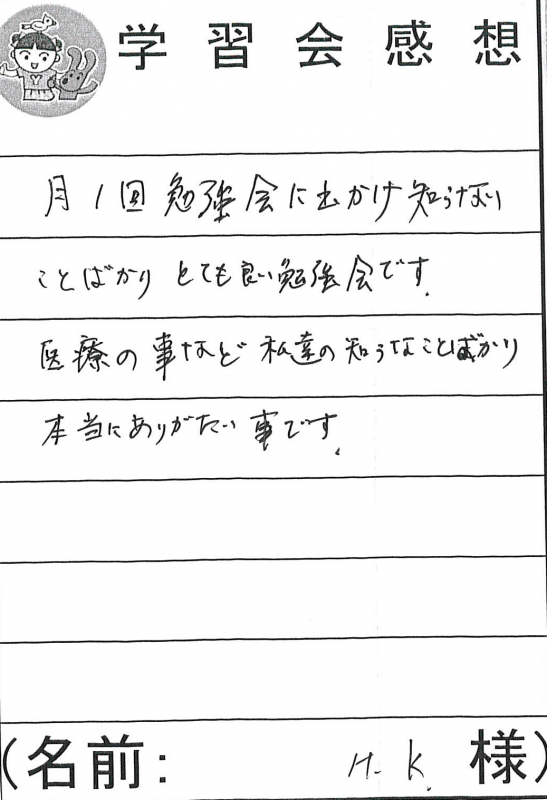 学習会感想
月1回勉強会に出かけ知らない
ことばかり とても良い勉強会です。
医療の事など 私達の知らなことばかり
本当にありがたい事です。
(名前: H.K. 様)